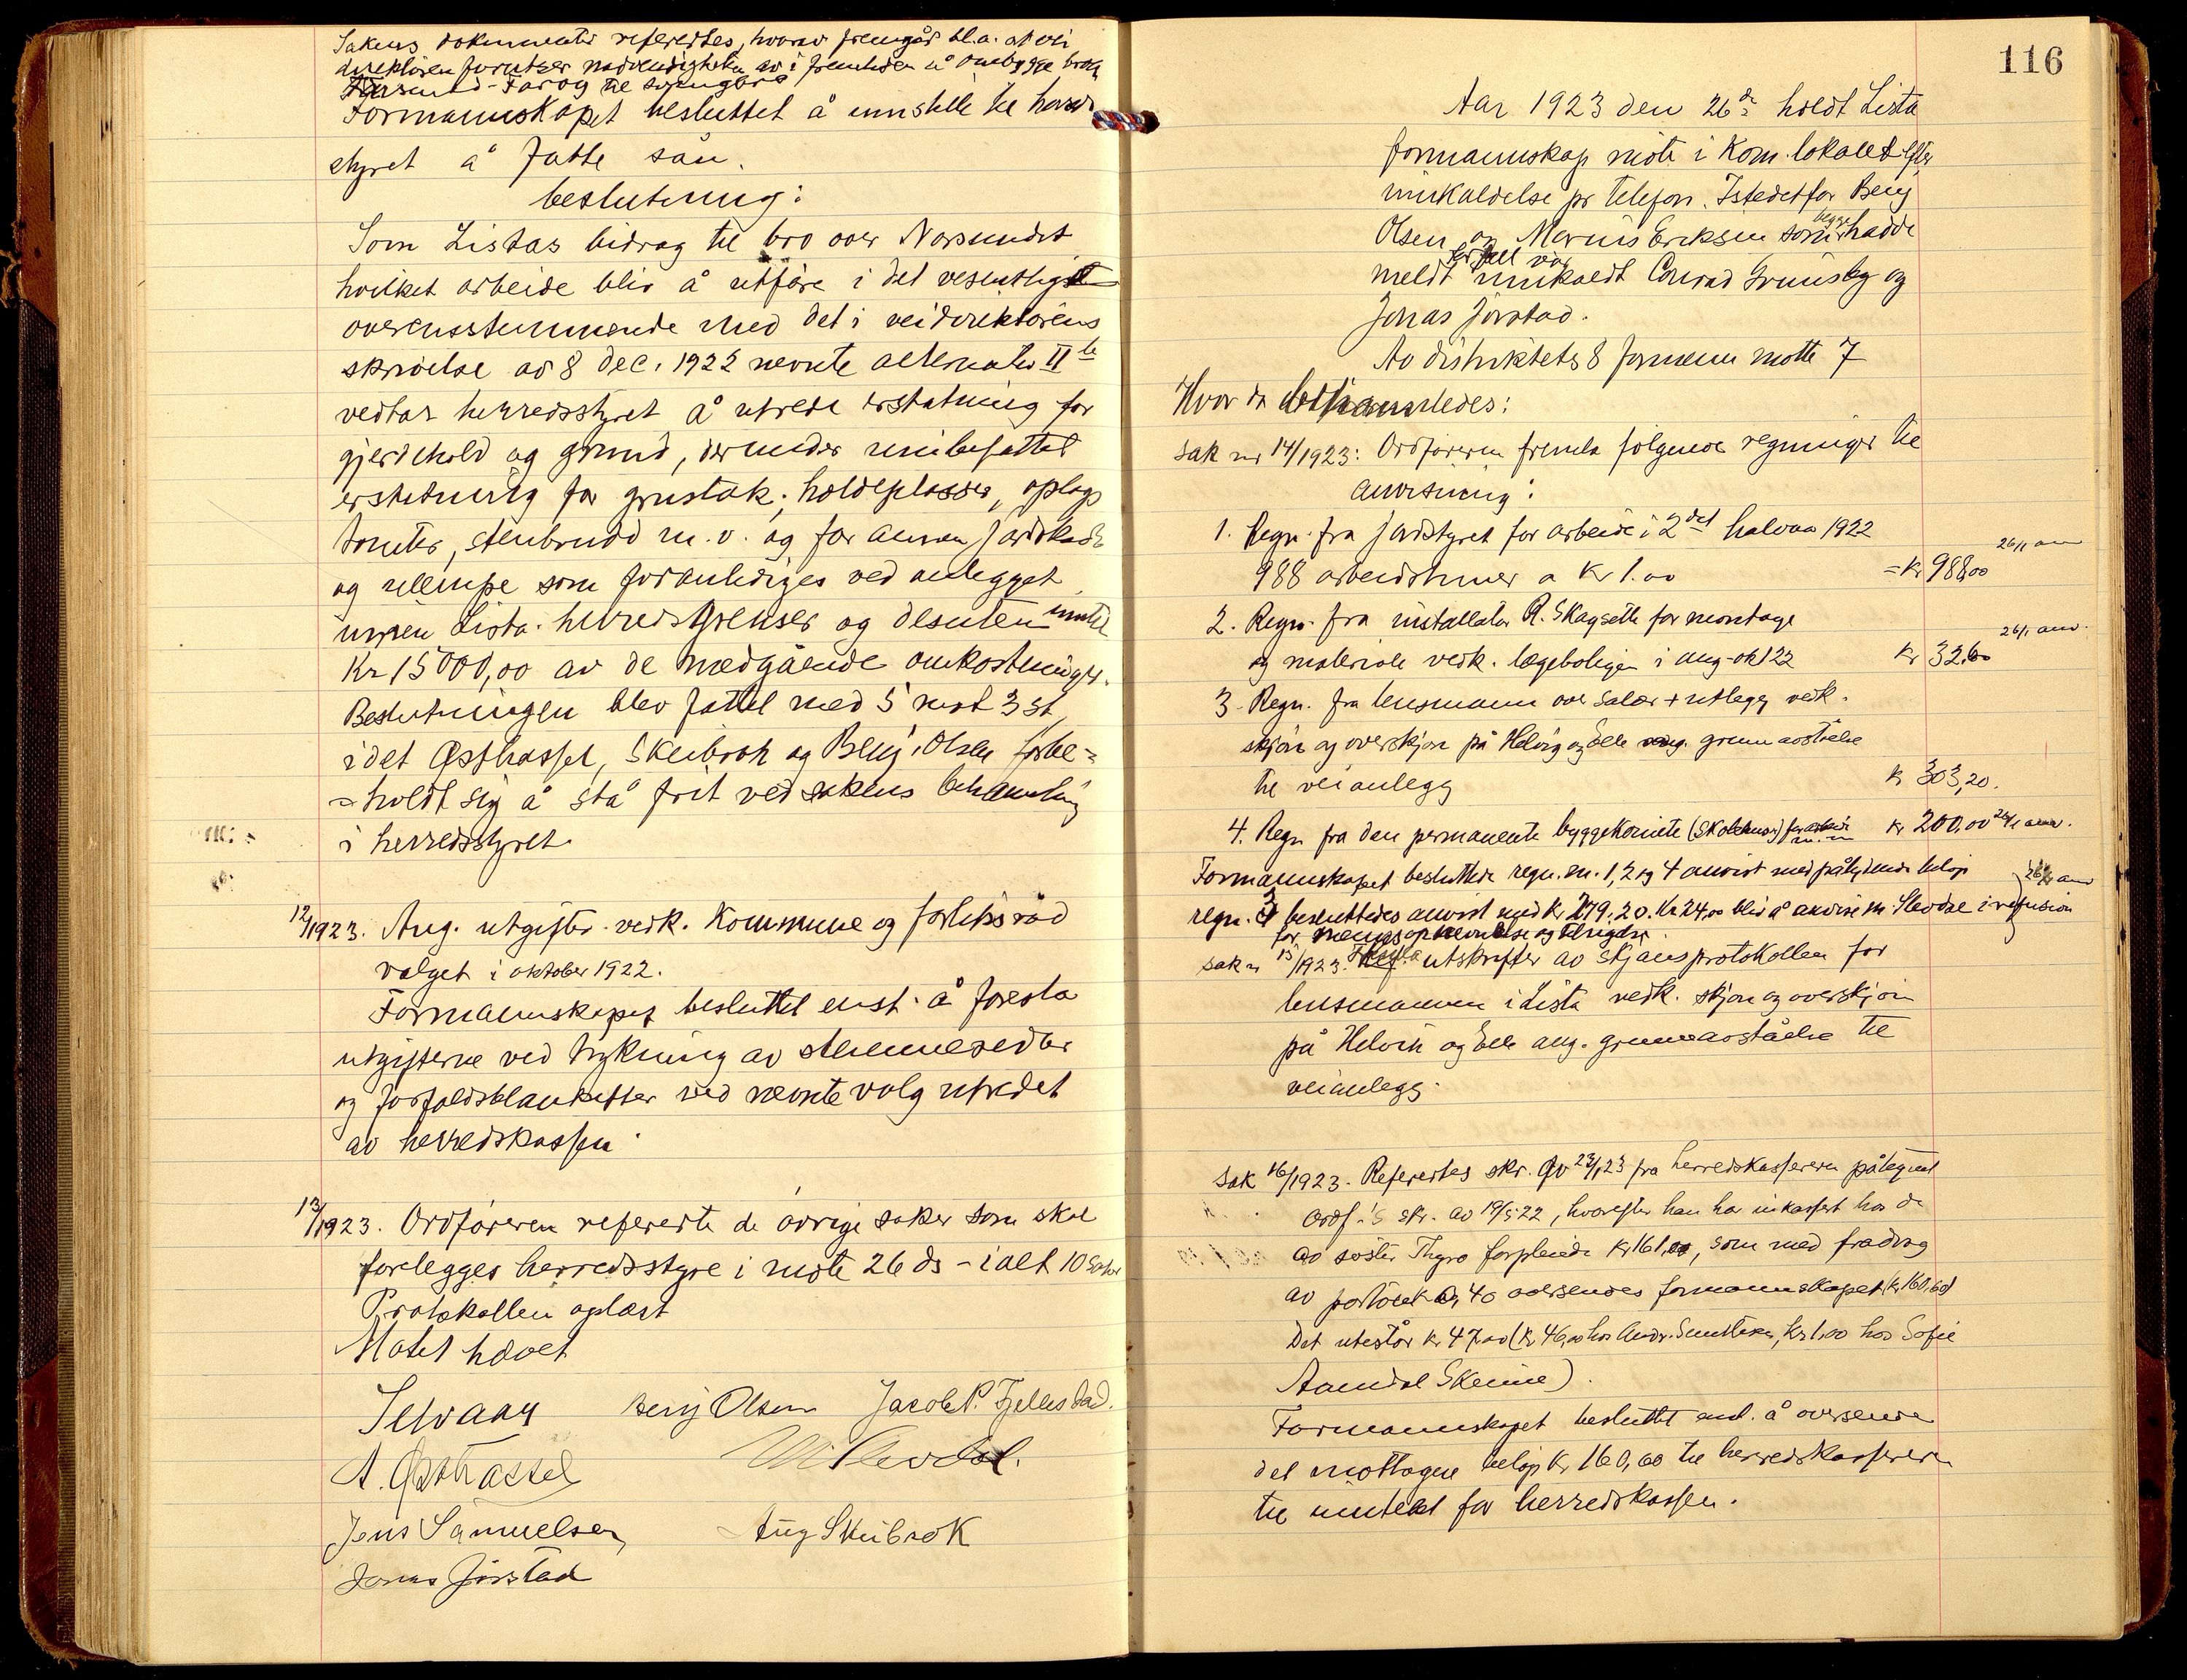 Sakens dokumenter refertes, hvorav fremgår bl.a. at vei
direktøren forutser nødvendigheten av i fremtiden å ombygge broen
Farsund-Farøy til svingbro
Formannskapet besluttet å innstille til herreds
styret å fatte sån.
beslutning:
Som Listas bidrag til bro over Narsundet
hvilket arbeide blir å utføre i det vesentligst
overensstemmende med det i veidirektørens
skrivelse av 8 dec. 1922 nevnte alternativ II te
vedtar herredsstyret å utrede erstatning for
gjerdehold og grund, derunder innbefattet
erstatning for grustak, holdeplasser, oplags
tomter, stenbrudd m.v. og for annen jordskade
og ulempe som foranlediges ved anlegget
innen Lista herreds grenser og desuten inntil
Kr 15000,00 av de medgående omkostninger.
Beslutningen blev fattet med 5 mot 3 st,
idet Østhassel, Skeibrok og Benj. Olsen forbe=
=holdt sig å stå frit ved sakens behandling
i herredsstyret.
12/1923. Ang. utgifter vedk. kommune og forliksråd
valget i oktober 1922.
Formannskapet besluttet enst. å foreslå
utgifterne ved trykning av stemmesedler
og forfaldsblanketter ved nevnte valg utredet
av herredskassen.
13/1923. Ordføreren refererte de øvrige saker som skal
forelegges herredsstyre i møte 26 ds - ialt 10 saker
Protokollen oplæst
Møtet hævet
Benj Olsen Jacob P. Fjellestad.
A. Østhassel
Jens Samuelsen Aug Skeibrok
Jonas Jørstad
116
Aar 1923 den 26de holdt Lista
formannskap møte i Kom. lokalet efter
innkaldelse pr telefon. Istedetfor Benj
Olsen og Marius Eriksen som begge hadde
meldt forfall var innkaldt Conrad Grimsby og
Jonas Jørstad.
Av distriktets 8 formenn møtte 7
Hvor da behandledes:
Sak nr 14/1923: Ordføreren fremla følgende regninger til
anvisning:
1. Regn. fra jordstyret for arbeide i 2det halvaar 1922
988 arbeidstimer a Kr 1.00 = Kr 988,00 26/1 anv
2. Regn. fra installatør R. Skagseth for montage
og materiale vedk. lægeboligen i aug-okt 22 Kr 32.60 26/1 anv.
3. Regn. fra lensmann over salær + utlegg vedk.
skjøn og overskjøn på Helvig og Elle ang. grunnavståelse
til veianlegg kr 303,20.
4. Regn fra den permanente byggekomite (Skolehuse) for arbeide m.m. Kr 200.00 26/1 anv.
Formannskapet besluttede regn. nr. 1, 2 og 4 anvist med pålydende beløp 26/1 anv
regn. 3 besluttedes anvist med kr 279,20. Kr 24,00 blir å anvise M. Slevdal i refusion
for mannsopnevnelse og tilsigelse.
Sak nr 15/1923. Fremla utskrifter av skjønsprotokollen for
lensmannen i Lista vedk. skjøn og overskjøn
på Helvik og Elle ang. grunnavståelse til
veianlegg.
Sak 16/1923. Refertes skr. av 23/1 23 fra herredskassereren påtegnet
ordf.'s skr. av 19/5 22, hvorefter han har inkassert hos de
av søster Thyra forpleiede kr 161,00, som med fradrag
av porto kr 0,40 oversendes formannskapet (kr 160,60)
Det utestår kr 47.00 (kr 46,00 hos Andr. , kr 1,00 hos Sofie
Aamdal Skeime).
Formannskapet besluttet enst. å oversende
det mottagne beløp kr 160,60 til herredskassereren
til inntekt for herredskassen.